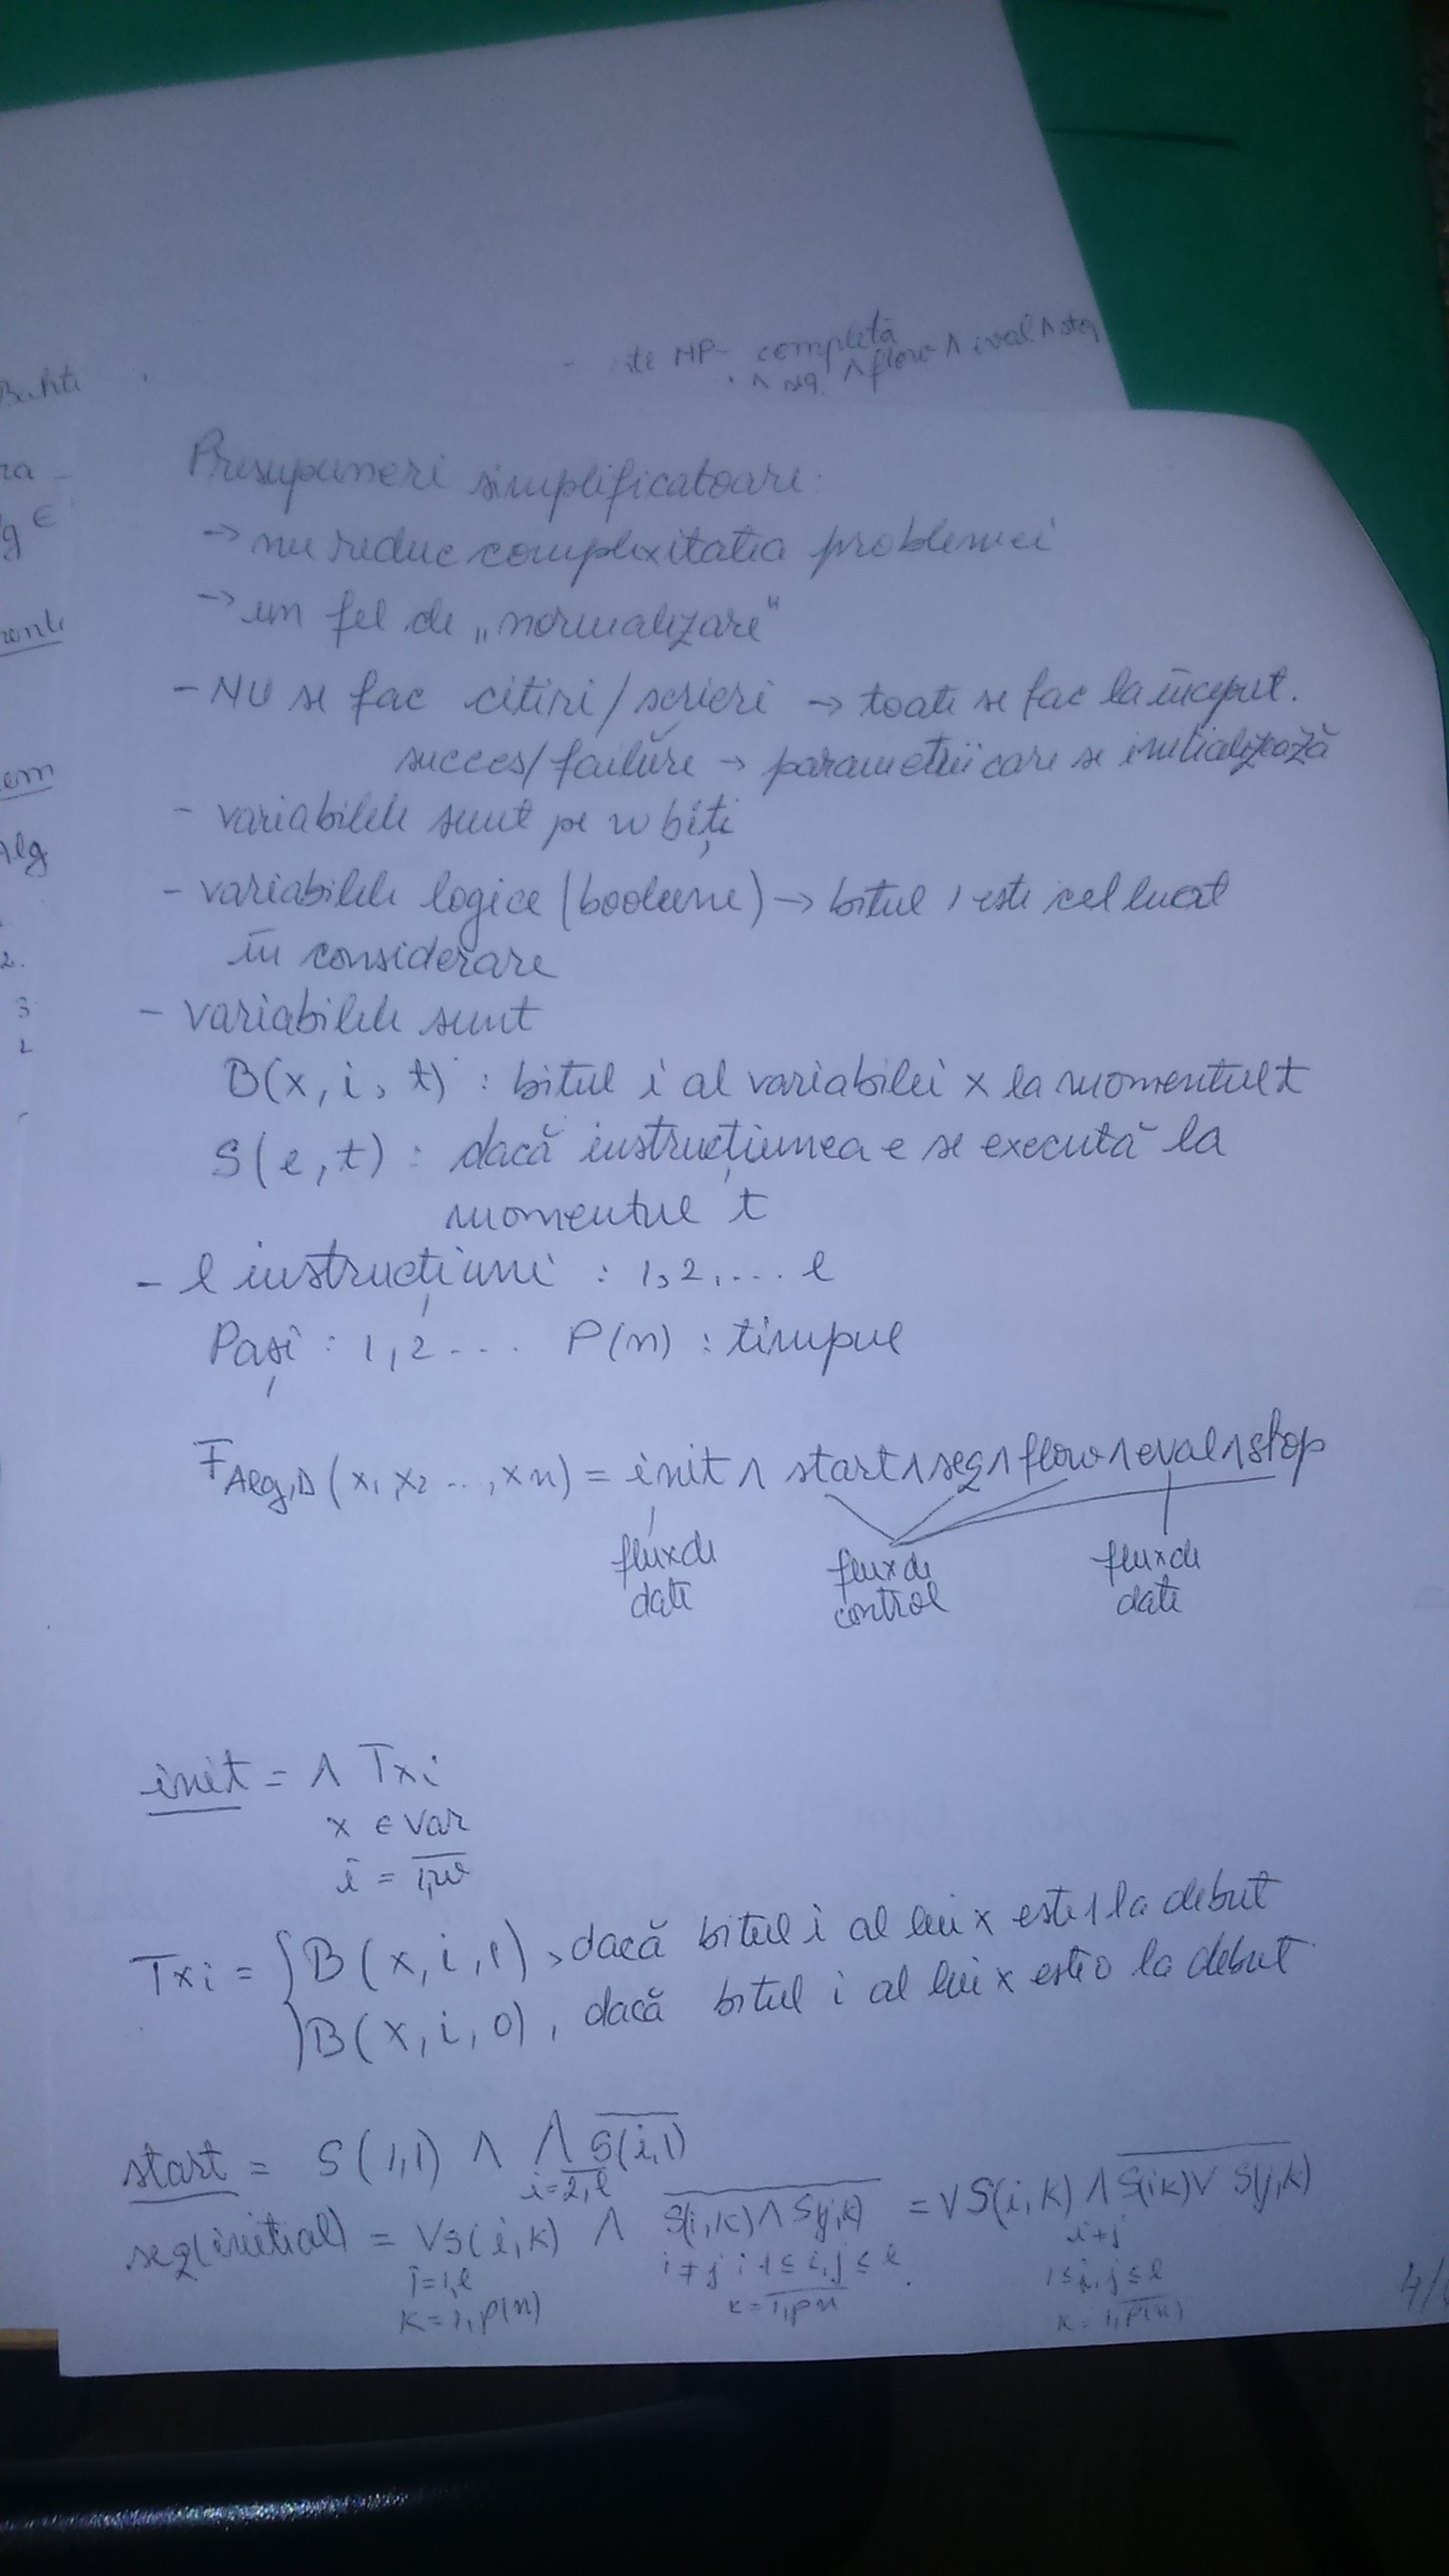 te NP- completă
∧ seq ∧ flow ∧ eval ∧ stop
ra
g ∈
em
Alg
2.
3
Presupuneri simplificatoare:
→ nu reduc complexitatea problemei
→ un fel de „normalizare"
- NU se fac citiri/scrieri → toate se fac la început.
succes/failure → parametrii care se initializează
- variabilele sunt pe w biți
- variabilele logice (booleene) → bitul 1 este cel luat
în considerare
- variabilele sunt
B(x, i, t) : bitul i al variabilei x la momentul t
S(e, t) : dacă instrucțiunea e se execută la
momentul t
- l instrucțiuni : 1, 2, ... l
Pași : 1, 2 ... P(n) : timpul
F Alg,D (x1, x2 ..., xn) = init ∧ start ∧ seq ∧ flow ∧ eval ∧ stop
flux de date flux de control flux de date
init = ∧ Txi
x ∈ var
i = 1,w
Txi = { B(x, i, 1), dacă bitul i al lui x este 1 la debut
B(x, i, 0), dacă bitul i al lui x este 0 la debut
start = S(1,1) ∧ ∧ S̅(̅i̅,̅1̅)̅
i=2,l
seq(initial) = ∨S(i,k) ∧ S̅(̅i̅,̅k̅)̅ ̅∧̅ ̅S̅(̅j̅,̅k̅)̅ = ∨S(i,k) ∧ S̅(̅i̅k̅)̅ ̅∨̅ ̅S̅(̅j̅,̅k̅)̅
i=1,l i≠j; 1≤i,j≤l i≠j
k=1,p(n) k=1,pn 1≤i,j≤l
k=1,P(n)
4/